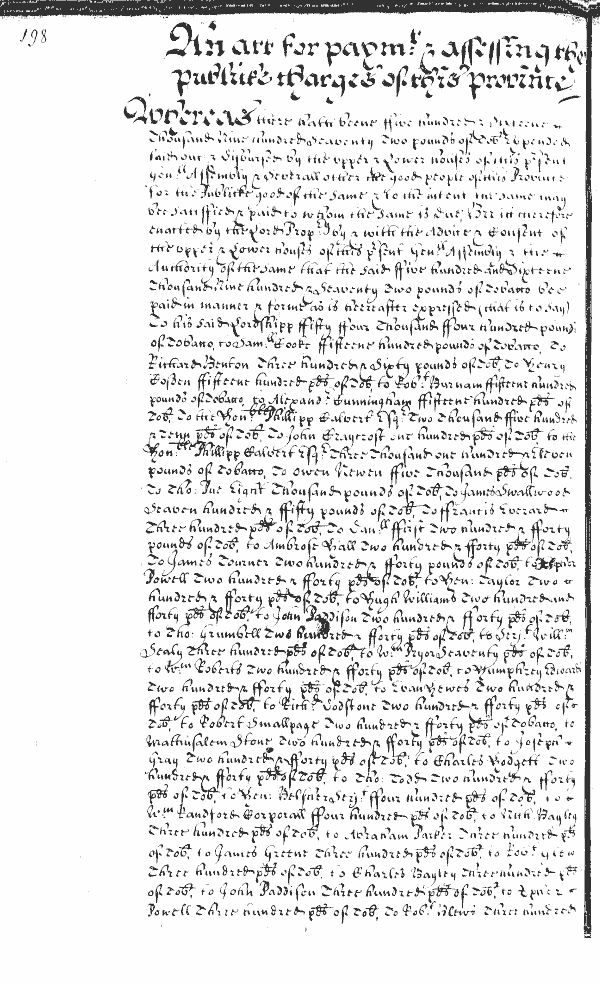 198
An act for paym.t & assessing the
publike charges of this province
Whereas there hath beene ffive hundred & Sixteene
Thousand Nine hundred Seaventy Two pounds of Tob. Expended
laid out & disbursed by the upper & Lower houses of this p'sent
Gen.ll Assembly & Severall other the good people of this Province
for the Publike good of the Same & to the intent the Same may
bee Satisfied & paid to whom the Same is due, Bee itt therefore
enacted by the Lord Prop.r by & with the Advice & Consent of
the upper & Lower houses of this p'sent Gen.ll Assembly & the
Authority of the Same that the Said ffive hundred and Sixteene
Thousand Nine hundred & Seaventy Two pounds of Tobacco bee
paid in manner & forme as is hereafter expressed (that is to Say)
To his Said Lordshipp ffifty ffour Thousand ffour hundred pounds
of Tobacco, to Sam.ll Cooke ffifteene hundred pounds of Tobacco, To
Richard Benton Three hundred & Sixty pounds of Tob, To Henry
ffifteene hundred pds of Tob, to Rob.t Burnam ffifteene hundred
pounds of Tobacco, to Alexand.r Cunningham ffifteene hundred pds of
Tob, To the Hon.ble Phillipp Calvert Esq.r Two Thousand ffive hundred
& Tenn pds of Tob, To John Craycroft one hundred pds of Tob, to the
Hon.ble Phillipp Calvert Esq.r Three Thousand one hundred & Eleven
pounds of Tobacco, To Owen Newen ffive Thousand pds of Tob,
To Tho: Eight Thousand pounds of Tob, To James Swallwood
Seaven hundred & ffifty pounds of Tob, To ffrancis Everard
Three hundred pds of Tob, To Dan.ll ffirst Two hundred & fforty
pounds of Tob, to Ambrose Ball Two hundred & fforty pds of Tob,
To James Tourner Two hundred & fforty pounds of Tob, to
Powell Two hundred & fforty pds of Tob, to Ben: Taylor Two
hundred & fforty pds of Tob, to Hugh Williams Two hundred and
fforty pds of Tob, to John Paddison Two hundred & fforty pds of Tob,
to Tho: Grumbell Two hundred & fforty pds of Tob, to Serj.t Will.m
Sealy Three hundred pds of Tob, to W.m Pryor Seaventy pds of Tob,
to W.m Roberts Two hundred & fforty pds of Tob, to Humphrey Edwards
Two hundred & fforty pds of Tob, to Evan Hewes Two hundred &
fforty pds of Tob, to Rich.d Two hundred & fforty pds of
Tob, to Robert Smallpage Two hundred & fforty pds of Tobacco, to
Mathusalem Stone Two hundred & fforty pds of Tob, to Joseph
Gray Two hundred & fforty pds of Tob, to Charles Two
hundred & fforty pds of Tob, to Tho: Todd Two hundred & fforty
pds of Tob, to Hen: Belscher Serj.t ffour hundred pds of Tob, to
W.m Randford Corporall ffour hundred pds of Tob, to Rich Bagley
Three hundred pds of Tob, to Abraham Parker Three hundred pds
of Tob, to James Greene Three hundred pds of Tob, to Rob.t
Three hundred pds of Tob, to Charles Bagley Three hundred pds
of Tob, to John Paddison Three hundred pds of Tob, to Xper
Powell Three hundred pds of Tob, To Rob.t Three hundred